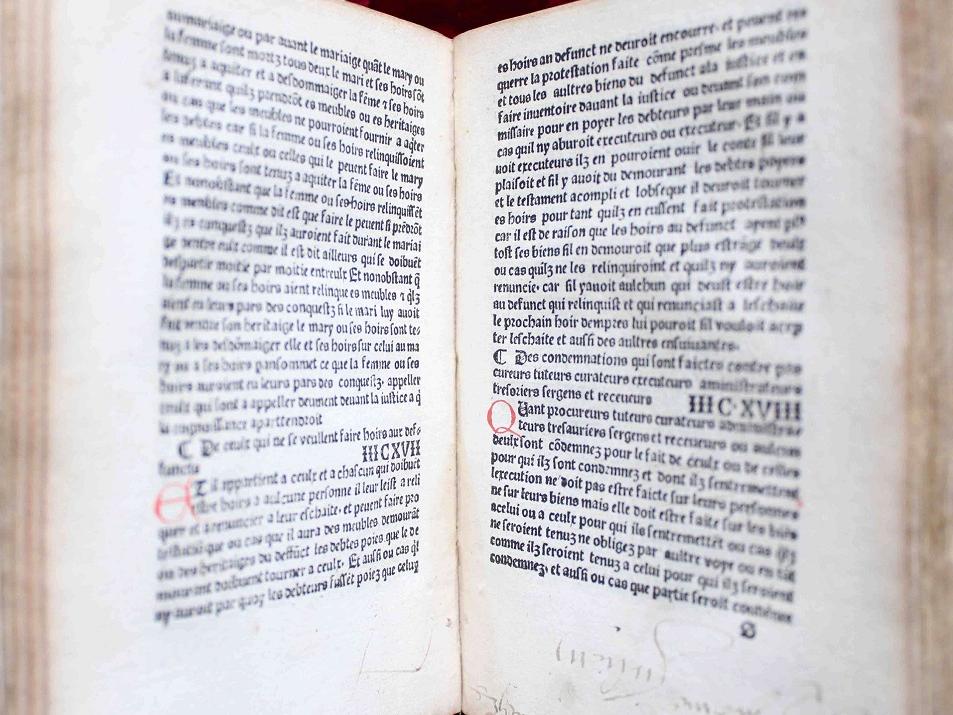 au mariaige ou par auant le mariaige quāt le mary ou
la femme sont mottz tous deux le mari et ses hoirs sōt
tenuz a aquiter et a desdommaiger la fēme ⁊ ses hoirs
a lui quilz prendrōt es meubles ou es heritaiges
ou cas que les meubles ne pourroient fournir a aq̄ter
les debtes car si la femme ou ses hoirs relinquissoient
es meubles ceulx ou celles qui le peuent faire le mary
ou ses hoirs sont tenuz a aquiter la fēme ou ses hoirs
Et nonobstant que la femme ou ses hoirs relinquissēt
es meubles comme dit est que faire le peuent si prēdrōt
ilz es conquestz que ilz auroient fait durant le mariai
ge comme il est dit ailleurs qui se doibuēt
despartir moitie par moitie entreulx Et nonobstant q̄
la femme ou ses hoirs aient relinque es meubles ⁊ q̄lz
aient eu leurs pars des conquestz si le mari luy auoit
fait vendre son heritaige le mary ou ses hoirs sont te
nuz a les desdōmaiger elle et ses hoirs sur celui au ma
ry ou a ses hoirs pansommet ce que la femme ou ses
hoirs auroient eu leurs pars des conquestz. appeller
ceulx qui sont a appeller deument deuant la iustice a q̄
la congnoissance apartendroit
❡ De ceulx qui ne se veullent faire hoirs aux def
functz IIICXVII
ET il appartient a ceulx et a chascun qui doibuēt
estre hoirs a aulcune personne il leur leist a reli
quer et a renuncier a leur eschaite. et peuent faire pro
testacion que ou cas que il aura des meubles demourāt
ou des heritaiges du deffūct les debtes poies que le de
mourant doibuent tourner a ceulx. Et aussi ou cas q̄l
ny auroit par quoy les debteurs fussēt poiez que celuy
es hoirs au defunct ne deuroit encourre. et peuent
querre la protestation faite cōme presme les meubles
et tous les aultres biens du defunct a la iustice et en
faire inuentoire dauant la iustice ou deuant son com
missaire pour en poyer les debteurs par leur main ou
cas quil ny aburoit executeurs ou executeur. Et sil y a
uoit executeurs ilz en pouroient ouir le conte sil leur
plaisoit et sil y auoit du demourant les debtes poyees
et le testament acompli et lobseque il deuroit tourner
es hoirs pour tant quilz en eussent fait protestation
car il est de raison que les hoirs au defunct ayent
tost ses biens sil en demouroit que plus estrāge
ou cas quilz ne les relinquiroint et quilz ny auroient
renuncie. car sil yauoit aulchun qui deust estre hoir
au defunct qui relinquist et qui renunciast a leschaite
le prochain hoir dempres lui pouroit sil vouloit accep
ter leschaite et aussi des aultres ensuiuantes.
❡ Des condemnations qui sont faictes contre pro
cureurs tuteurs curateurs executeurs aministrateurs
tresoriers sergens et receueurs IIIC.XVIII
QUant procureurs tuteurs curateurs
teurs tresauriers sergens et receueurs ou aulcun
deulx sont cōdemnez pour le fait de ceulx ou de celles
pour qui ilz sont condemnez et dont ilz sentremettent
lexecution ne doit pas estre faicte sur leurs personnes
ne sur leurs biens mais elle doit estre faite sur les biēs
acelui ou a ceulx pour qui ils sentremettēt ou cas q̄lz
ne seroient tenuz ne obligez par aultre voye ou en
comme ilz seroient tenuz a celui pour qui ilz seroient
condemnez. et aussi ou cas que partie seroit